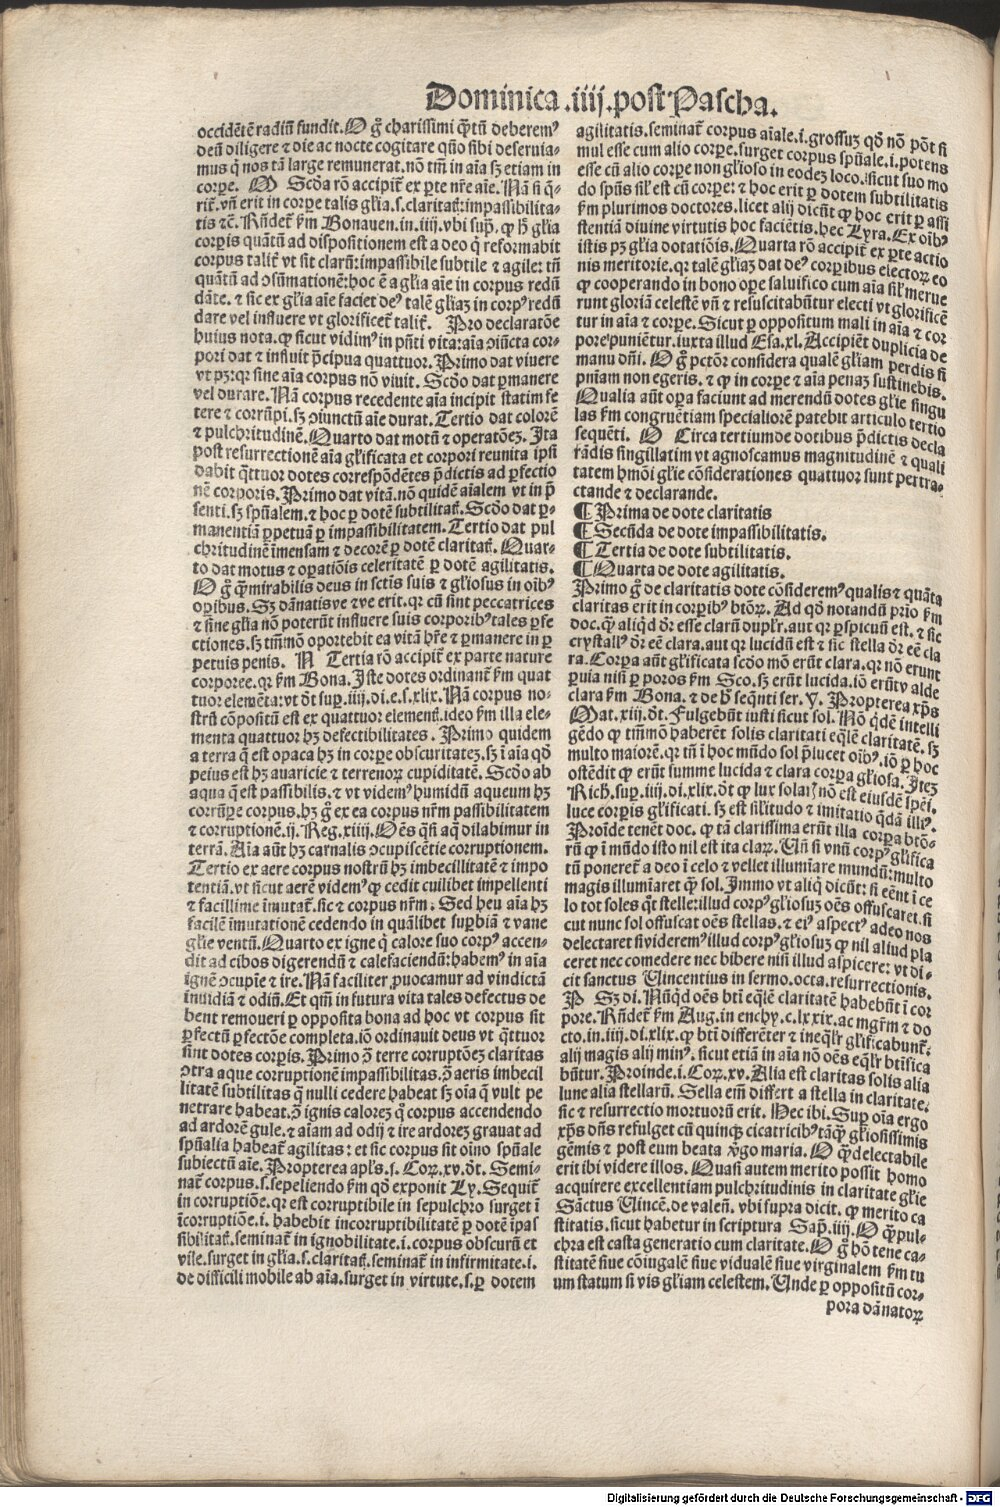 Dominica .iiij. post Pascha.
occidẽtẽ radiũ fundit. O g̃ charissimi q̃tũ deberemꝰ
deũ diligere ⁊ die ac nocte cogitare qũo sibi deseruia-
mus q̇ nos tã large remunerat. nõ tm̃ in aĩa sꝫ etiam in
corꝑe. M Scďa rõ accipit᷑ ex ꝑte nr̃e aĩe. Nã si q̃-
rit᷑. vñ erit in corꝑe talis gl̃ia .s. claritas: impassibilita-
tis ⁊c̃. Rñdet᷑ ẜm Bonauen. in .iiij. vbi sup̃. ꝙ hͫ gl̃ia
corꝑis quãtũ ad dispositionem est a deo q̇ reformabit
corpus talit᷑ vt sit clarũ: impassibile subtile ⁊ agile: tñ
quãtũ ad ꝯsũmationẽ: hoc ẽ a gl̃ia aĩe in corpus redũ
dãte. ⁊ sic ex gl̃ia aĩe faciet deꝰ talẽ gl̃iaꝫ in corpꝰ redũ
dare vel influere vt glorificet᷑ talit᷑. Pro declaratõe
huius nota. ꝙ sicut vidimꝰ in p̃nti vita: aĩa ꝯiũcta cor-
pori dat ⁊ influit p̃cipua quattuor. Primo dat viuere
vt pꝫ: qꝛ sine aĩa corpus nõ viuit. Scďo dat ꝑmanere
vel durare. Nã corpus recedente aĩa incipit statim fe
tere ⁊ corrũpi. sꝫ ꝯiunctũ aĩe durat. Tertio dat colorẽ
⁊ pulchritudinẽ. Quarto dat motũ ⁊ operatõeꝫ. Ita
post resurrectionẽ aĩa gl̃ificata et corpori reunita ipsi
dabit q̃ttuor dotes correspõdẽtes p̃dictis ad ꝑfectio
nẽ corporis. Primo dat vitã. nõ quidẽ aĩalem vt in p̃
senti. sꝫ spũalem. ⁊ hoc ꝑ dotẽ subtilitat᷑. Scďo dat ꝑ-
manentiã ꝑpetuã ꝑ impassibilitatem. Tertio dat pul
chritudinẽ ĩmensam ⁊ decorẽ ꝑ dotẽ claritat᷑. Quar-
to dat motus ⁊ oꝑatiõis celeritatẽ ꝑ dotẽ agilitatis.
O g̃ q̃mirabilis deus in sctĩs suis ⁊ gl̃iosus in oĩbꝰ
oꝑibus. Sꝫ dãnatis ve ⁊ ve erit. qꝛ cũ sint peccatrices
⁊ sine gl̃ia nõ poterũt influere suis corporibꝰ tales ꝑfe
ctiones. sꝫ tm̃mõ oportebit ea vitã hr̃e ⁊ ꝑmanere in ꝑ
petuis penis. N Tertia rõ accipit᷑ ex parte nature
corporee. qꝛ ẜm Bona. Iste dotes ordinant᷑ ẜm quat
tuor elemẽta: vt ďt sup̃. iiij. di. e. s. xlix. Nã corpus no-
strũ cõpositũ est ex quattuor element᷑. ideo ẜm illa ele-
menta quattuor hꝫ defectibilitates. Primo quidem
a terra q̃ est opaca hꝫ in corꝑe obscuritateꝫ. sꝫ ĩ aĩa qď
peius est hꝫ auaricie ⁊ terrenoꝝ cupiditatẽ. Scďo ab
aqua q̃ est passibilis. ⁊ vt videmꝰ humidũ aqueum hꝫ
corrũꝑe corpus. hꝫ g̃ ex ea corpus nr̃m passibilitatem
⁊ corruptionẽ. ij. Reg. xiiij. Oẽs q̃si aq̃ dilabimur in
terrã. Aĩa aũt hꝫ carnalis ꝯcupiscẽtie corruptionem.
Tertio ex aere corpus nostrũ hꝫ imbecillitatẽ ⁊ impo
tentiã. vt sicut aerẽ videmꝰ ꝙ cedit cuilibet impellenti
⁊ facillime ĩmutat᷑. sic ⁊ corpus nr̃m. Sed heu aĩa hꝫ
facilẽ ĩmutationẽ cedendo in quãlibet suꝑbiã ⁊ vane
gl̃ie ventũ. Quarto ex igne q̇ calore suo corpꝰ accen-
dit ad cibos digerendũ ⁊ calefaciendũ: habemꝰ in aĩa
ignẽ ꝯcupĩe ⁊ ire. Nã faciliter ꝓuocamur ad vindictã
ĩnuidiã ⁊ odiũ. Et qm̃ in futura vita tales defectus de
bent remoueri ꝑ opposita bona ad hoc vt corpus sit
ꝑfectũ ꝑfectõe completa. iõ ordinauit deus vt q̃ttuor
sint dotes corꝑis. Primo ꝯ̃ terre corruptõeꝫ claritas
ꝯtra aque corruptionẽ impassibilitas. ꝯ̃ aeris imbecil
litatẽ subtilitas q̃ nulli cedere habeat sꝫ oĩa q̃ vult pe
netrare habeat. ꝯ̃ ignis caloreꝫ q̇ corpus accendendo
ad ardorẽ gule. ⁊ aĩam ad odij ⁊ ire ardoreꝫ grauat ad
spũalia habeat᷑ agilitas: et sic corpus sit oĩno spũale
subiectũ aĩe. Propterea apl̃s .j. Coꝝ. xv. ďt. Semi-
nat᷑ corpus .s. sepeliendo ẜm qď exponit Ly. Sequit᷑
in corruptiõe. qꝛ est corruptibile in sepulchro surget ĩ
ĩcorruptiõe .i. habebit incorruptibilitatẽ ꝑ dotẽ ĩpas
sibilitat᷑. seminat᷑ in ignobilitate .i. corpus obscurũ et
vile. surget in gl̃ia .s. claritat᷑. seminat᷑ in infirmitate .i.
de difficili mobile ab aĩa. surget in virtute .s. ꝑ dotem
agilitatis. seminat᷑ corpus aĩale .i. grossuꝫ qď nõ põt si
mul esse cum alio corꝑe. surget corpus spũale .i. potens
esse cũ alio corꝑe non gl̃ioso in eodeꝫ loco. sicut suo mo
do spũs sil̃ est cũ corꝑe: ⁊ hoc erit ꝑ dotem subtilitatis
ẜm plurimos doctores. licet alij dicũt ꝙ hoc erit ꝑ assi
stentiã diuine virtutis hoc faciẽtis. hec Lyra. Ex oĩbꝰ
istis pꝫ gl̃ia dotatiõis. Quarta rõ accipit᷑ ex ꝑte actio
nis meritorie. qꝛ talẽ gl̃iaꝫ dat deꝰ corꝑibus electoꝝ eo
ꝙ cooperando in bono oꝑe saluifico cum aĩa sil̃ merue
runt gloriã celestẽ vñ ⁊ resuscitabũtur electi vt glorificẽ
tur in aĩa ⁊ corꝑe. Sicut ꝑ oppositum mali in aĩa ⁊ cor
pore puniẽtur. iuxta illud Esa. xl. Accipiẽt duplicia de
manu dñi. O g̃ pctõr considera qualẽ gl̃iam perdis si
pñiam non egeris. ⁊ ꝙ in corꝑe ⁊ aĩa penaꝫ sustinebis.
Qualia aũt oꝑa faciunt ad merendũ dotes gl̃ie singu
las ẜm congruẽtiam specialiorẽ patebit articulo tertio
sequẽti. O Circa tertium de dotibus p̃dictis decla
rãdis singillatim vt agnoscamus magnitudinẽ ⁊ quali
tatem hmõi gl̃ie cõsiderationes quattuor sunt pertra-
ctande ⁊ declarande.
¶ Prima de dote claritatis
¶ Secũda de dote impassibilitatis.
¶ Tertia de dote subtilitatis.
¶ Quarta de dote agilitatis.
Primo g̃ de claritatis dote cõsideremꝰ qualis ⁊ quãta
claritas erit in corꝑibꝰ btõꝝ. Ad qď notandũ prĩo ẜm
doc. ꝙ aliqď ďr esse clarũ duplr̃. aut qꝛ ꝑspicuũ est. ⁊ sic
crystallꝰ ďr eẽ clara. aut qꝛ lucidũ est ⁊ sic stella ďr eẽ cla
ra. Corꝑa aũt gl̃ificata scďo mõ erũt clara. qꝛ nõ erunt
ꝑuia nisi ꝑ poros ẜm Sco. sꝫ erũt lucida. iõ erũt valde
clara ẜm Bona. ⁊ de hͦ seq̃nti ser. V. Propterea xp̃s
Mat. xiij. ďt. Fulgebũt iusti sicut sol. Nõ q̇dẽ intelli
gẽdo ꝙ tm̃mõ haberẽt solis claritati eq̃lẽ claritatẽ. sꝫ
multo maiorẽ. qꝛ tñ ĩ hoc mũdo sol p̃lucet oĩbꝰ. iõ ꝑ hoc
ostẽdit ꝙ erũt summe lucida ⁊ clara corꝑa gl̃iosa. Iteꝫ
Rich. sup̃. iiij. di. xlix. ďt ꝙ lux solaris nõ est eiusdẽ spẽi.
luce corꝑis gl̃ificati. sꝫ est sil̃itudo ⁊ imitatio q̃dã illiꝰ.
Proĩde tenẽt doc. ꝙ tã clarissima erũt illa corꝑa btõ-
rũ ꝙ ĩ mũdo isto nil est ita claꝝ. Vñ si vnũ corpꝰ gl̃ifica
tũ poneret᷑ a deo ĩ celo ⁊ vellet illumĩare mundũ: multo
magis illumĩaret ꝙ̃ sol. Immo vt aliq̇ dicũt: si eẽnt ĩ ce
lo tot soles q̃t stelle: illud corpꝰ gl̃iosuꝫ oẽs offuscaret. si
cut nunc sol offuscat oẽs stellas. ⁊ eiꝰ aspectꝰ adeo nos
delectaret si videremꝰ illud corpꝰ gl̃iosuꝫ ꝙ nil aliud pla
ceret nec comedere nec bibere nisi illud aspicere: vt di-
cit sanctus Vincentius in sermo. octa. resurrectionis.
P Sꝫ di. Nũq̇d oẽs bti eq̃lẽ claritatẽ habebũt ĩ cor
pore. Rñdet᷑ ẜm Aug. in enchy. c. lxxix. ac mgr̃m ⁊ do
cto. in .iiij. di. xlix. ꝙ bti differẽter ⁊ ineq̃lr̃ gl̃ificabunt᷑.
alij magis alij minꝰ. sicut etiã in aĩa nõ oẽs eq̃lr̃ btĩfica
bũtur. Proinde .i. Coꝝ. xv. Alia est claritas solis alia
lune alia stellarũ. Sella em̃ differt a stella in claritate.
sic ⁊ resurrectio mortuorũ erit. Hec ibi. Sup̃ oĩa ergo
xp̃s dñs refulget cũ quinqꝫ cicatricibꝰ tãꝙ̃ gl̃iosissimis
gẽmis ⁊ post eum beata v̓go maria. O q̃delectabile
erit ibi videre illos. Quasi autem merito possit homo
acquirere excellentiam pulchritudinis in claritate gl̃ie
Sãctus Vincẽ. de valeñ. vbi supra dicit. ꝙ merito ca
stitatis. sicut habetur in scriptura Sap̃. iiij. O q̃pul-
chra est casta generatio cum claritate. O g̃ hõ tene ca-
stitatẽ siue cõiugalẽ siue vidualẽ siue virginalem ẜm tu
um statum si vis gl̃iam celestem. Unde ꝑ oppositũ cor-
pora dãnatoꝝ
Digitalisierung gefördert durch die Deutsche Forschungsgemeinschaft - DFG